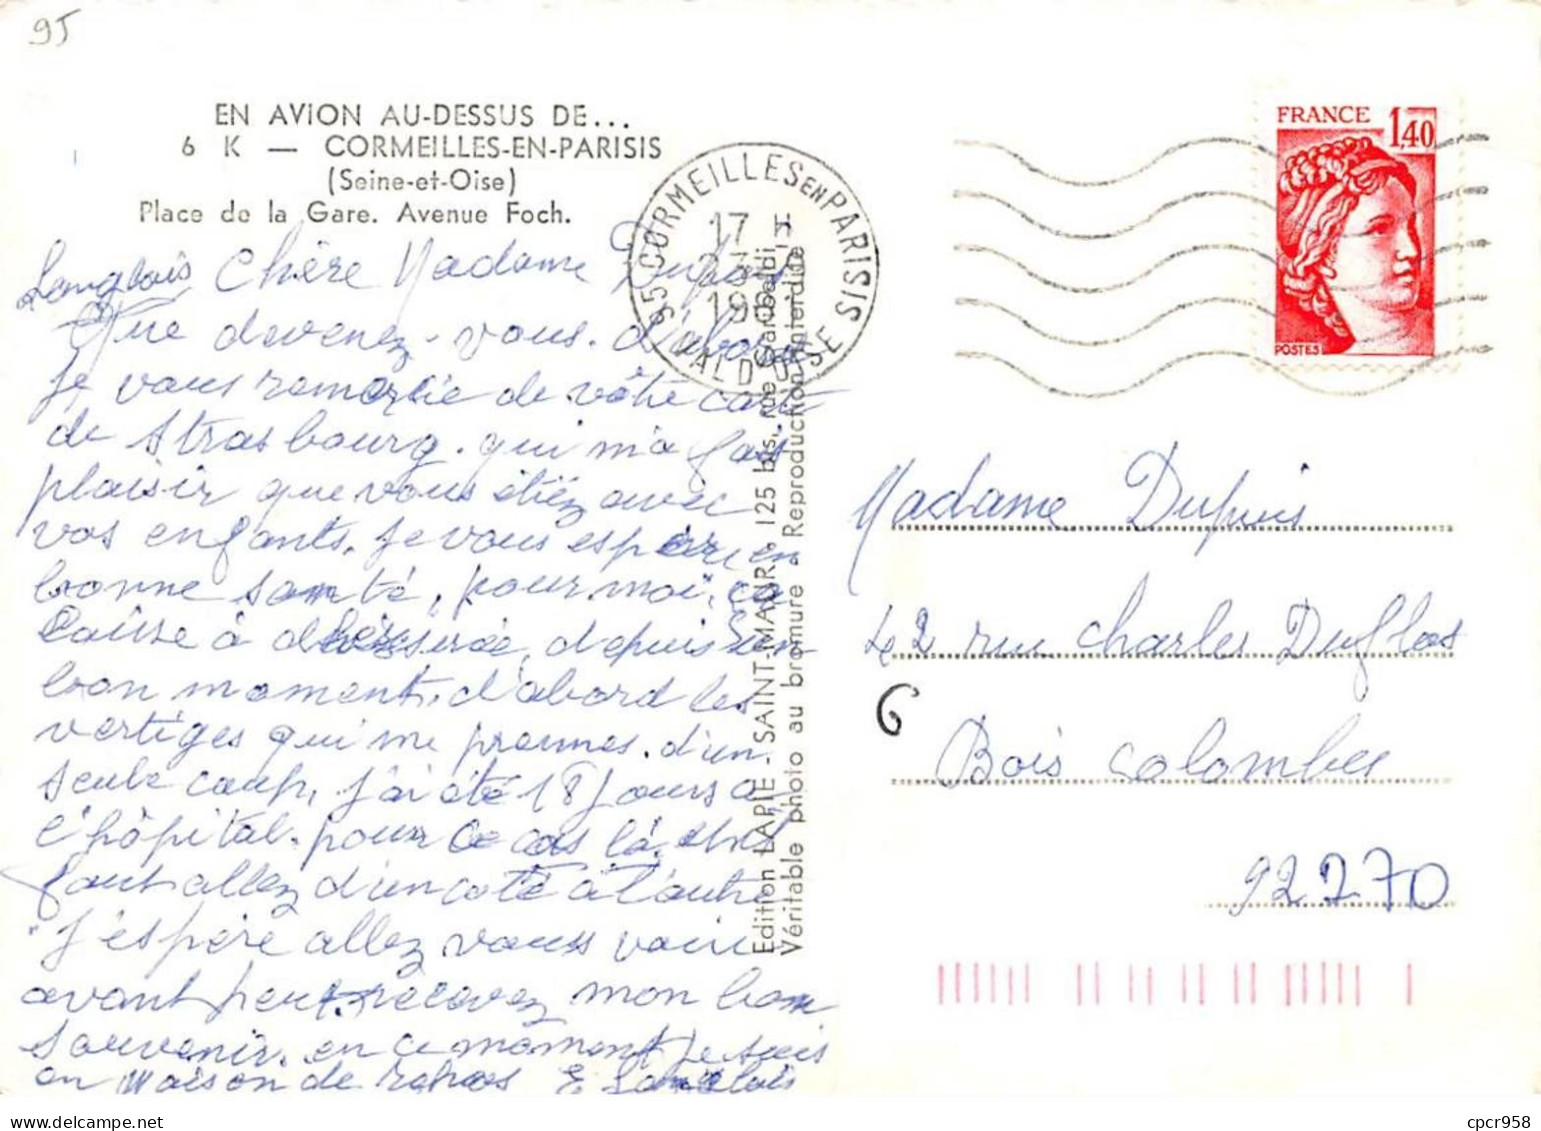 95
EN AVION AU-DESSUS DE...
6 K — CORMEILLES-EN-PARISIS
(Seine-et-Oise)
Place de la Gare. Avenue Foch.
Langlois Chère Madame Dupuis
Que devenez-vous. d'abord
Je vous remercie de vôtre carte
de Strasbourg. qui m'a fais
plaisir que vous étiez avec
vos enfants. Je vous espère en
bonne santé, pour moi, ça
laisse à désirée, depuis un
bon moment, d'abord les
vertiges qui me prennes. d'un
seule coup, j'ai été 18 Jours a
l'hôpital. pour ce cas là.
faut allez d'un coté à l'autre
J'éspère allez vous voir
avant peut. recevez mon bon
souvenir. en ce moment je suis
en Maison de repos E Langlois
95 CORMEILLES EN PARISIS
17 H
VAL D'OISE
Edition LAPIE - SAINT-MAUR, 125 bis, rue Garibaldi
Véritable photo au bromure - Reproduction interdite
FRANCE 1,40
POSTES
Madame Dupuis
42 rue Charles Duflos
6
Bois colombes
92270
cpcr958